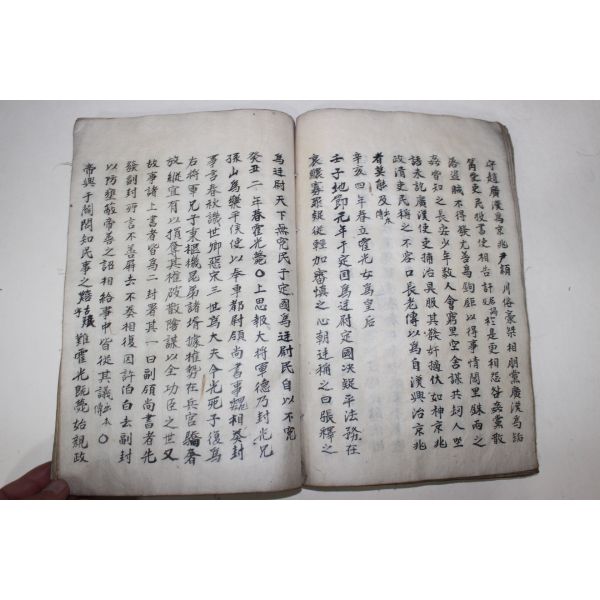 守趙廣漢為京兆尹穎川俗豪桀相朋黨廣漢為缿
筩受吏民投書使相告訐於是更相怨咎姦黨散
落盜賊不得發尤善為鉤距以得事情閭里銖兩之
姦皆知之長安少年數人會窮里空舍謀共刼人坐
語未訖廣漢使吏捕治具服其發奸擿伏如神京兆
政清吏民稱之不容口長老傳以為自漢興治京兆
者莫能及
辛亥四年春立霍光女為皇后
壬子地節元年于定國為廷尉定國决疑平法務在
哀鰥寡罪疑從輕加審慎之心朝廷稱之曰張釋之
為廷尉天下無寃民于定國為廷尉民自以不寃
癸丑二年春霍光薨〇上思報大將軍德乃封光兄
孫山為樂平侯使以奉車都尉領尚書事魏相奏封
事言春秋譏世卿惡宋三世為大夫今光死子復為
右將軍兄子秉樞機昆弟諸壻據權勢在兵官驕奢
放縱宜有以損奪其權破散陰謀以全功臣之世又
故事諸上書者皆為二封署其一曰副領尚書者先
發副封所言不善屏去不奏相復因許伯白去副封
以防壅蔽帝善之詔相給事中皆從其議〇
帝興于閭閻知民事之難霍光既薨始親政